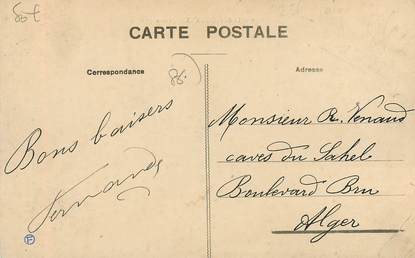 80f
CARTE POSTALE
Correspondance
Adresse
86
Bons baisers
Fernande
Monsieur R. Venaud
caves du Sahel
Boulevard Bru
Alger
F